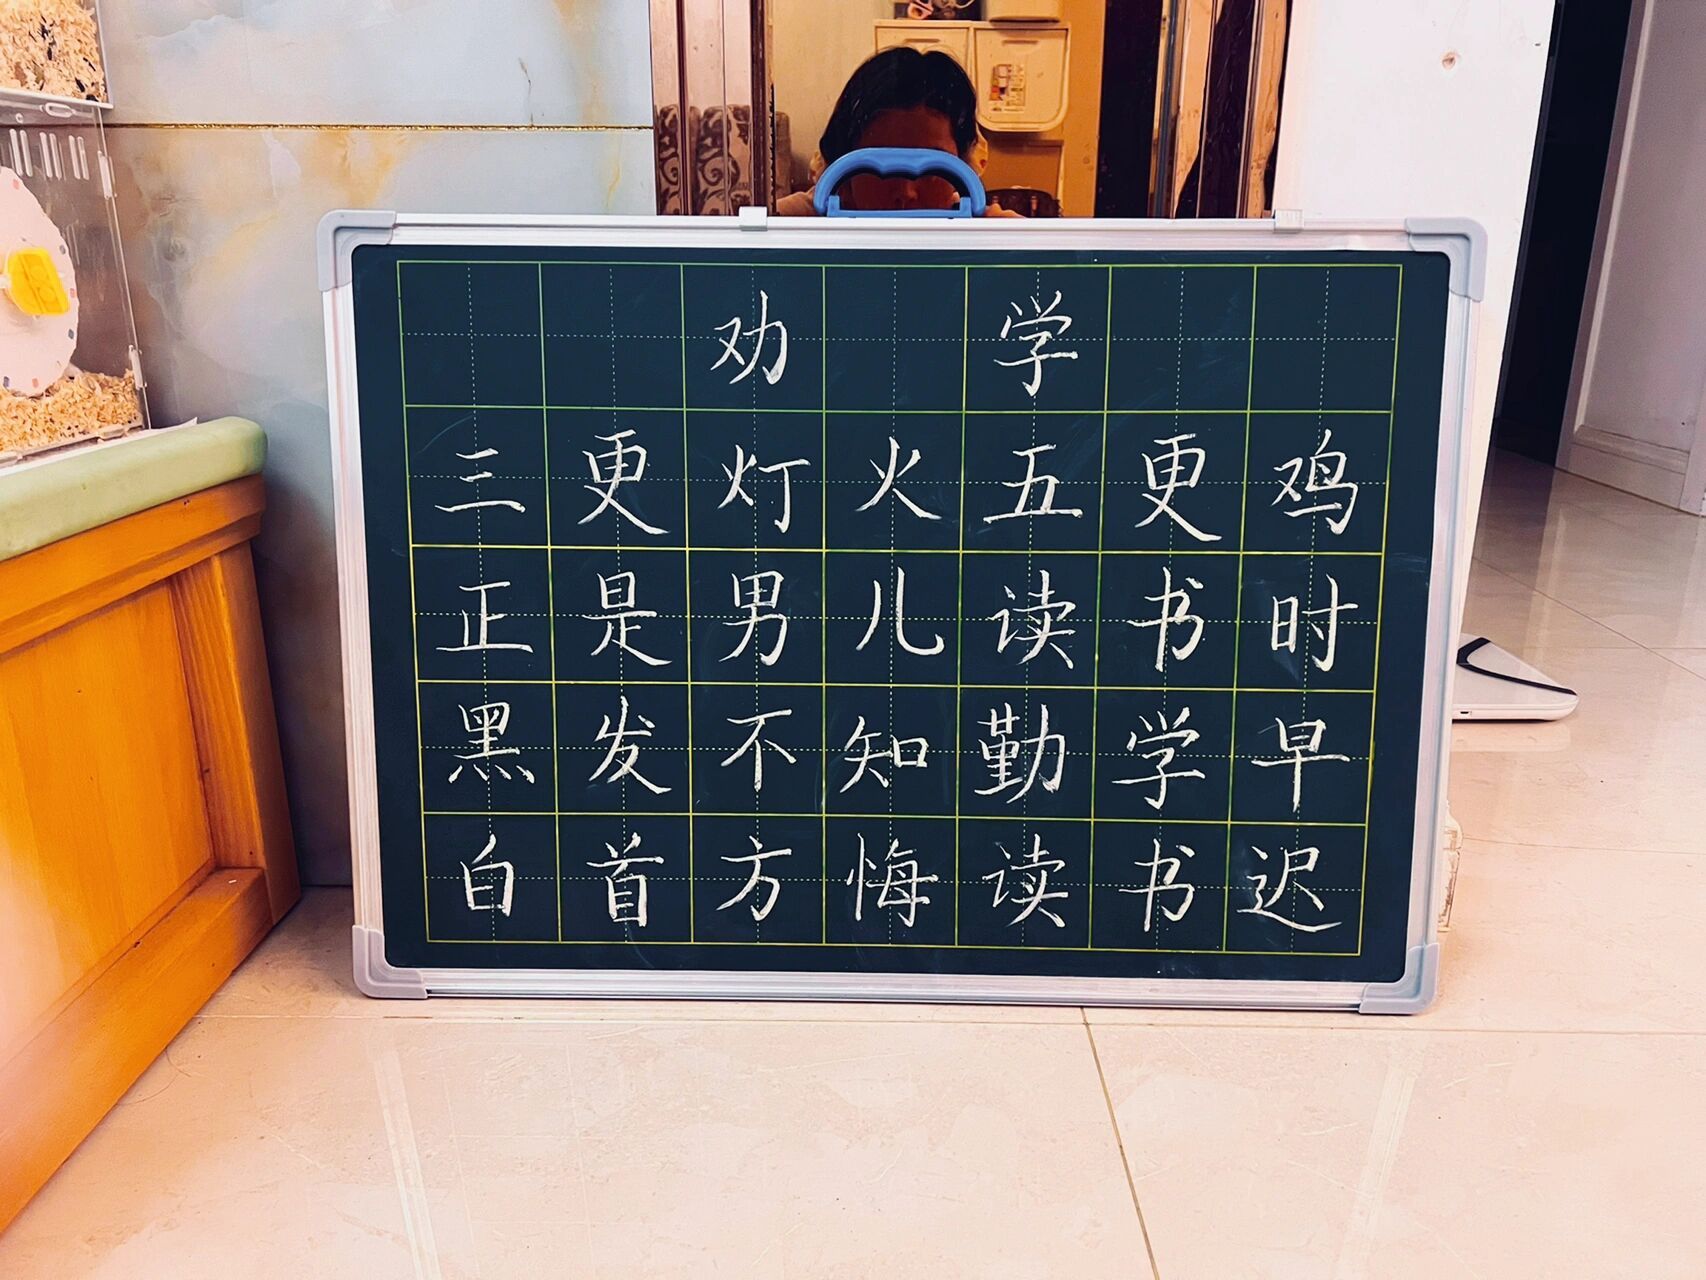 劝学
三更灯火五更鸡
正是男儿读书时
黑发不知勤学早
白首方悔读书迟